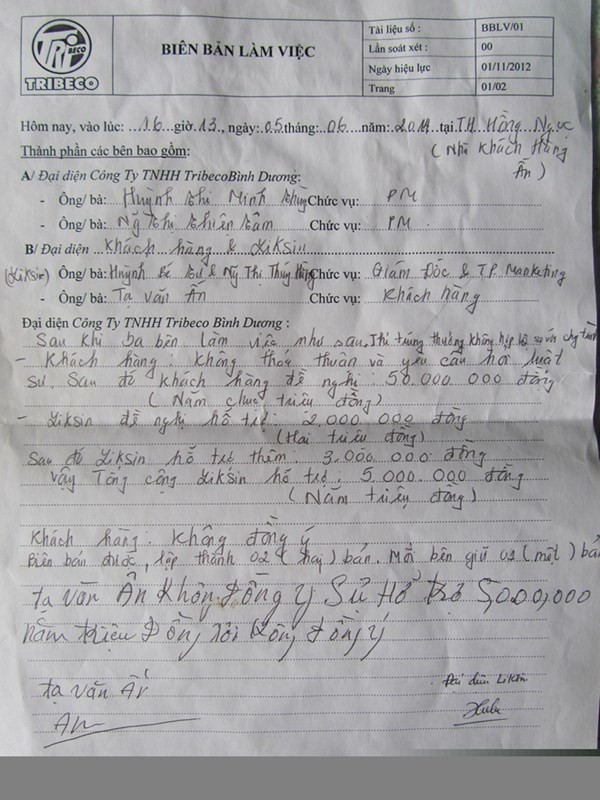 TRI BECO
TRIBECO
BIÊN BẢN LÀM VIỆC
Tài liệu số : BBLV/01
Lần soát xét : 00
Ngày hiệu lực 01/11/2012
Trang 01/02
Hôm nay, vào lúc: 16 giờ 13, ngày: 05 tháng: 06 năm: 2014 tại TH Hồng Ngự
Thành phần các bên bao gồm: (Nhà Khách Hàng
Ấn)
A/ Đại diện Công Ty TNHH TribecoBình Dương:
- Ông/ bà: Huỳnh Thị Minh Thùy Chức vụ: PM
- Ông/ bà: Ng Thị Thiên Tâm Chức vụ: PM
B/ Đại diện Khách hàng & Liksin
(Liksin) Ông/ bà: Huỳnh & Ng Thị Thúy Hằng Chức vụ: Giám Đốc & T.P. Marketing
- Ông/ bà: Tạ Văn Ấn Chức vụ: Khách hàng
Đại diện Công Ty TNHH Tribeco Bình Dương :
Sau khi ba bên làm việc như sau. Thì trúng thưởng không hợp lệ so với
- Khách hàng : Không thỏa thuận và yêu cầu hỏi luật
sư. Sau đó khách hàng đề nghị : 50.000 000 đồng
(Năm chục triệu đồng)
- Liksin đề nghị hỗ trợ : 2.000 000 đồng
(Hai triệu đồng)
Sau đó Liksin hỗ trợ thêm : 3.000 000 đồng
Vậy Tổng cộng Liksin hỗ trợ : 5.000 000 đồng
(Năm triệu đồng)
Khách hàng : Không đồng ý
Biên bản được lập thành 02 (hai) bản. Mỗi bên giữ 01 (một) bả
tạ văn Ấn Không Đồng Ý Sự Hổ trợ 5,000,000
năm triệu Đồng tôi không Đồng ý
tạ văn Ấn
Đại diện Liksin